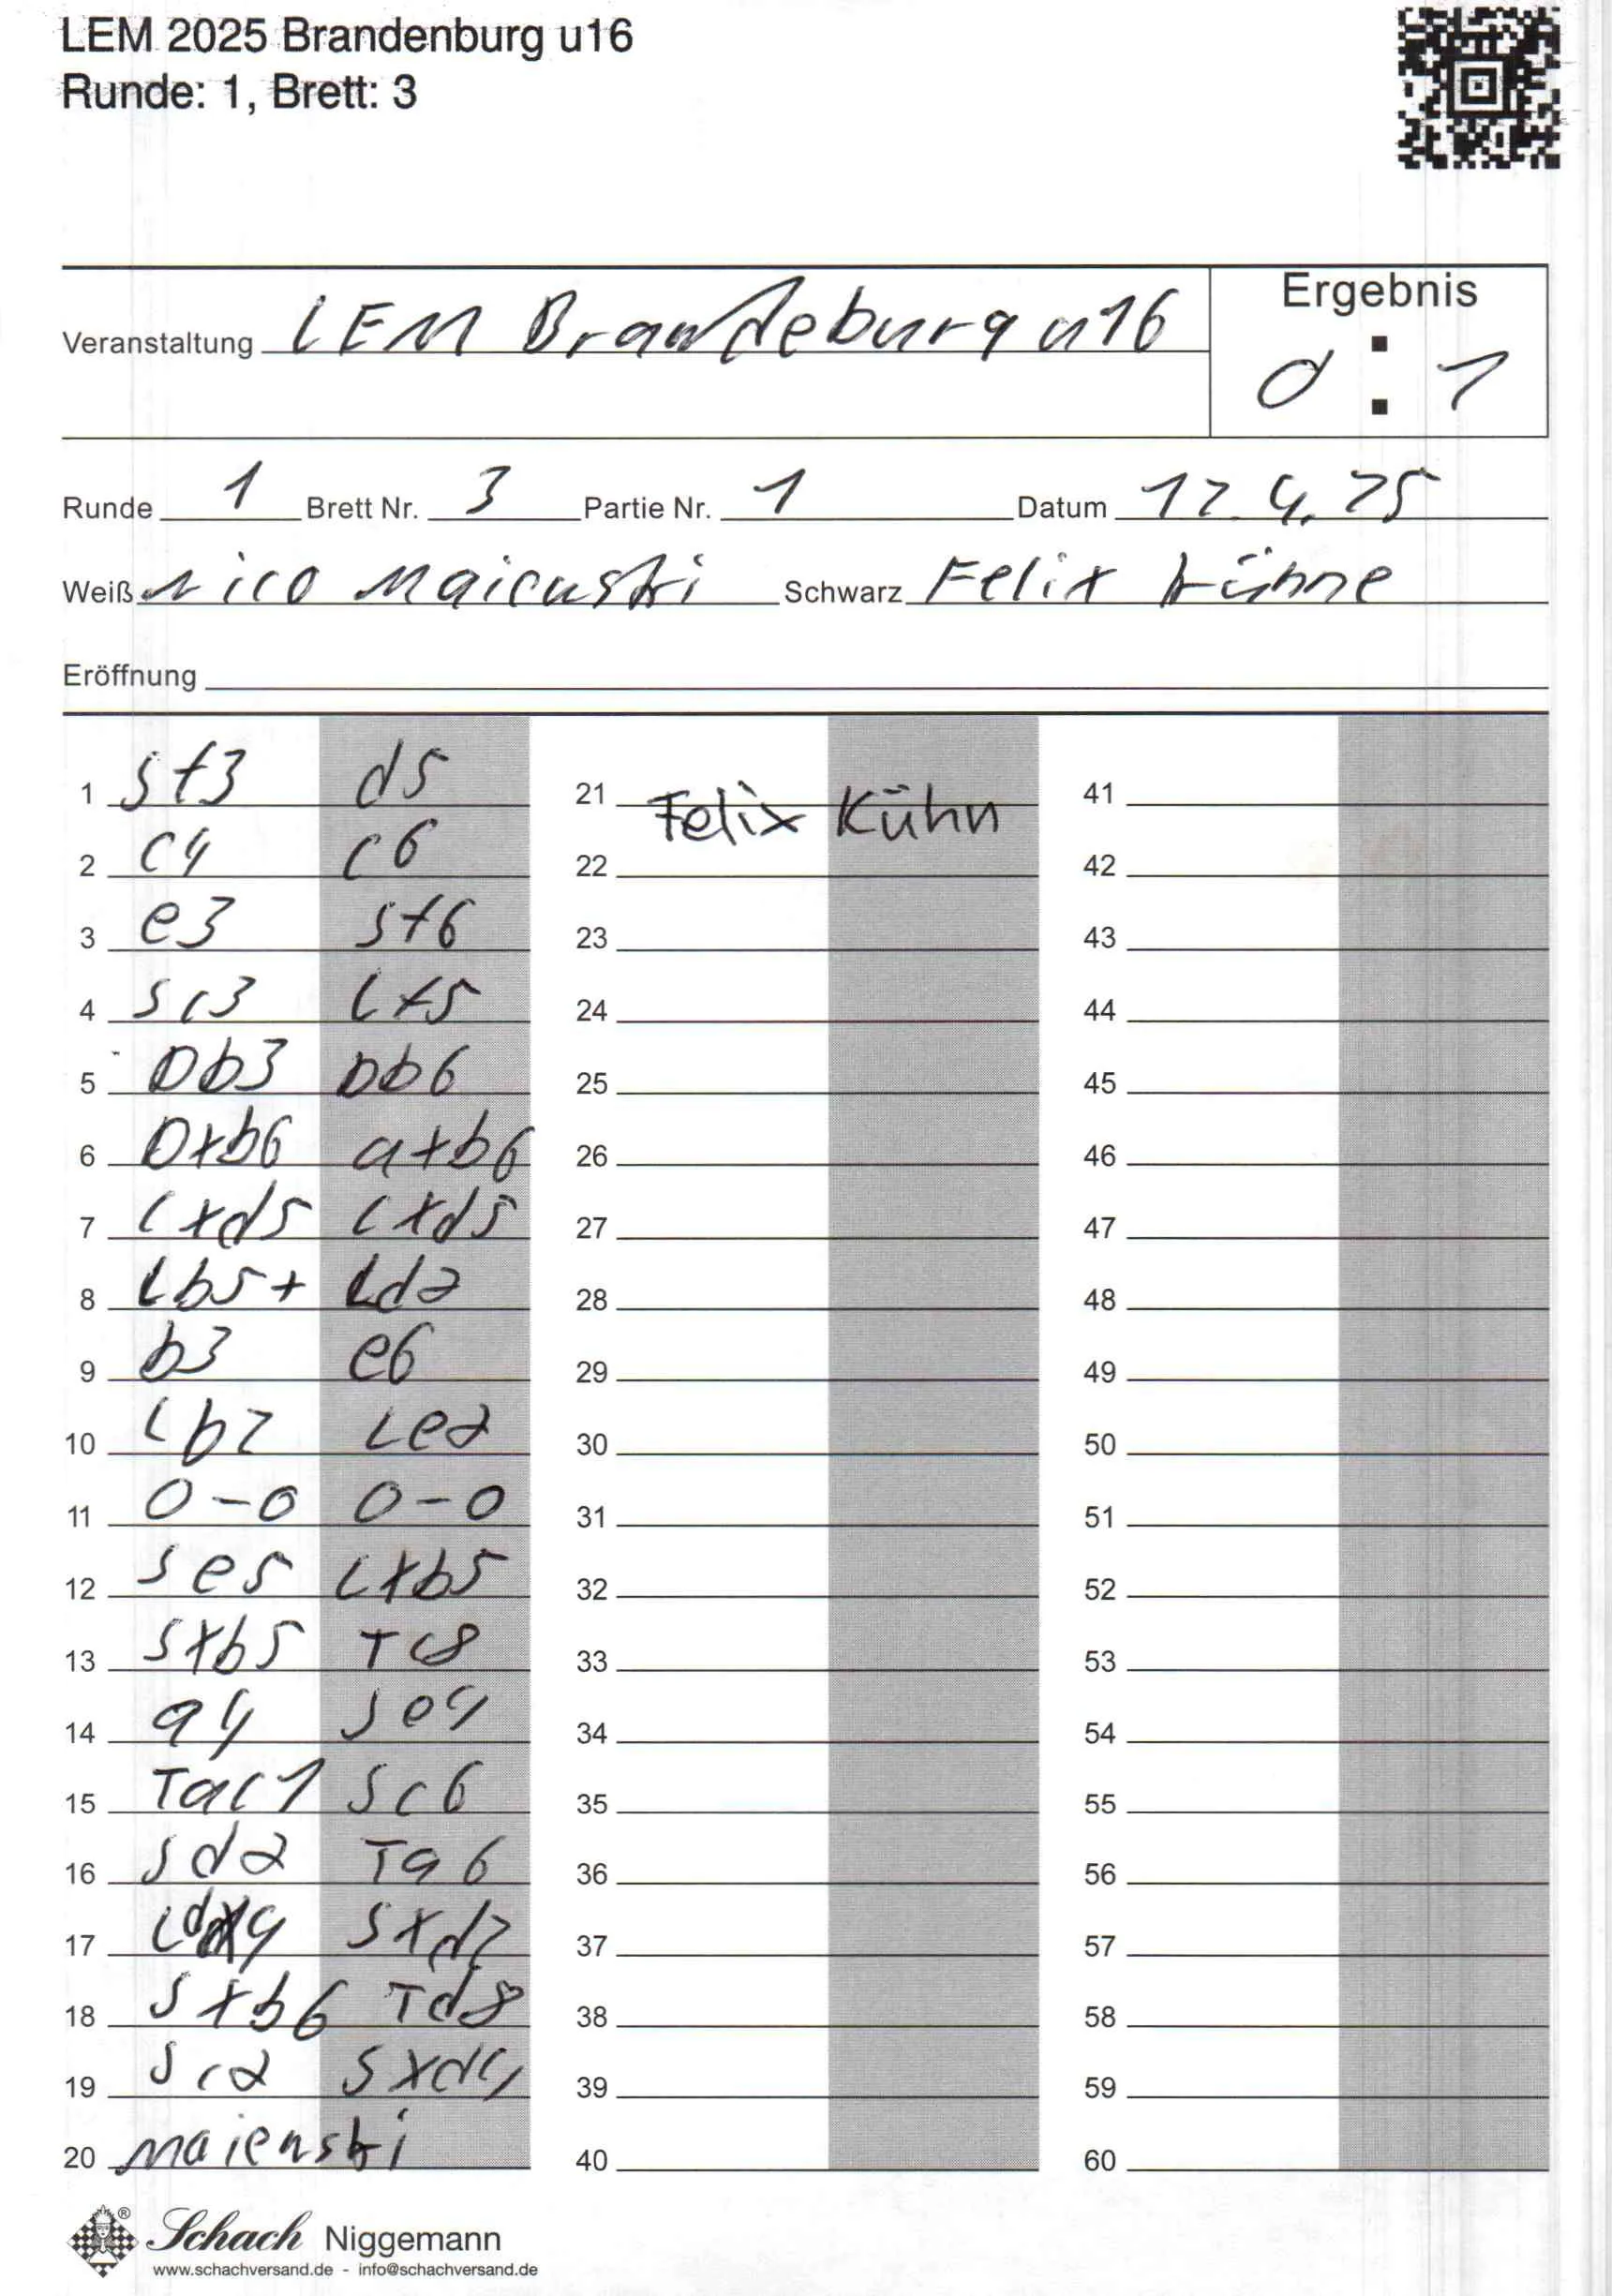 LEM 2025 Brandenburg u16
Runde: 1, Brett: 3
Ergebnis
Veranstaltung LEM Brandeburg u16
0 : 1
Runde 1 Brett Nr. 3 Partie Nr. 1 Datum 12.4.25
Weiß Nico Maicuski Schwarz Felix Kühne
Eröffnung
1 Sf3 d5 21 Felix Kühn 41
2 c4 c6 22 42
3 e3 Sf6 23 43
4 Sc3 Lf5 24 44
5 Db3 Db6 25 45
6 Dxb6 axb6 26 46
7 cxd5 cxd5 27 47
8 Lb5+ Ld7 28 48
9 b3 e6 29 49
10 Lb2 Le7 30 50
11 0-0 0-0 31 51
12 Se5 Lxb5 32 52
13 Sxb5 Tc8 33 53
14 a4 Se4 34 54
15 Tac1 Sc6 35 55
16 Sd7 Ta6 36 56
17 Ld4 Sxd2 37 57
18 Sxb6 Td8 38 58
19 Sc7 Sxd4 39 59
20 Maienski 40 60
Schach Niggemann
www.schachversand.de - info@schachversand.de